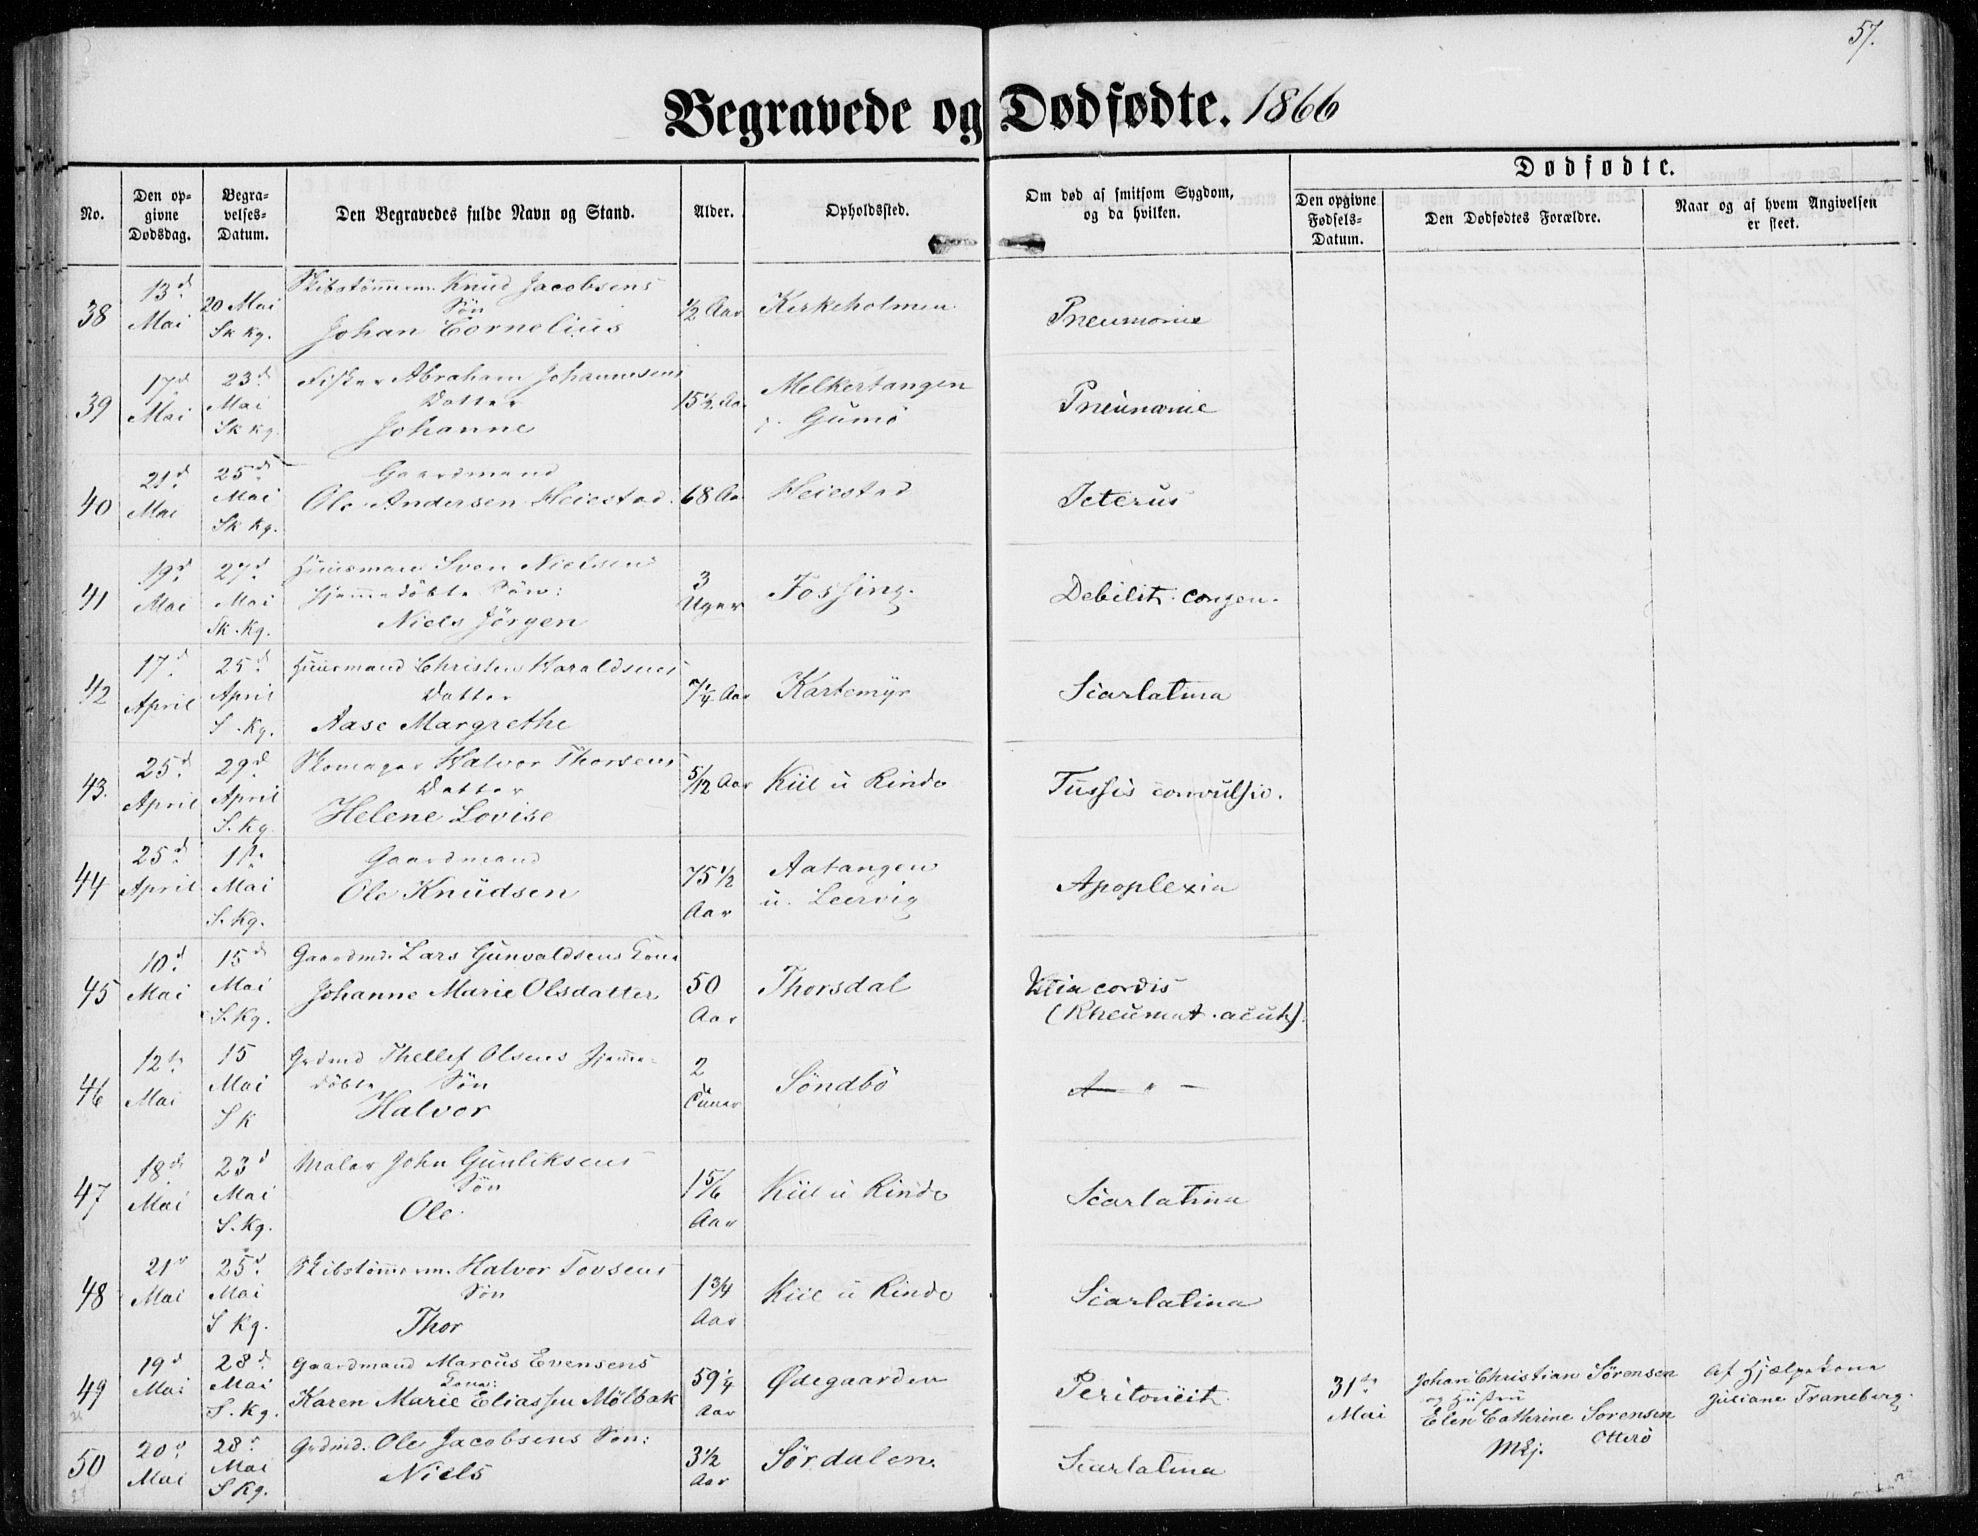 57.
Begravede og Dødfødte. 1866
Dødfødte.
No.
Den op-
givne
Dødsdag.
Begra-
velses-
Datum.
Den Begravedes fulde Navn og Stand.
Alder.
Opholdssted.
Om død af smitsom Sygdom,
og da hvilken.
Den opgivne
Fødsels-
Datum.
Den Dødfødtes Forældre.
Naar og af hvem Angivelsen
er skeet.
38
13d.
Mai
20 Mai
Sk kg.
Skibstømmerm. Knud Jacobsens
Søn
Johan Cornelius
1/2 Aar
Kirkeholmen
Pneumonie
39
17d
Mai
23d
Mai
Sk kg.
Fisker Abraham Johannesens
Datter
Johanne
15 1/2 Aar
Melkertangen
p. Gumö
Pneumonie
40
21d.
Mai
25d
Mai
Sk kg.
Gaardmand
Ole Andersen Heiestad.
68 Aar
Heiestad
Icterus
41
19d.
Mai
27d
Mai
Sk. Kg.
Huusmand Sven Nielsens
hjemmedöbte Søn:
Niels Jörgen
3
Uger
Fossing.
Debilit. congen.
42
17d.
April
25d
April
S. Kg.
Huusmand Christen Haraldsens
Datter
Aase Margrethe
7 1/4 Aar
Kartemyr
Scarlatina
43.
25d.
April
29d.
April
S. Kg
Skomager Halvor Thorsens
Datter
Helene Lovise
5/12 Aar
Kiil u Rinde
Tussis convulsiv.
44
25d.
April
1ste
Mai
S. Kg.
Gaardmand
Ole Knudsen
75 1/2
Aar
Aatangen
u. Leervig
Apoplexia
45
10d.
Mai
15d
Mai
S. Kg.
Gaardmd. Lars Gunvaldsens Kone
Johanne Marie Olsdatter
50
Aar
Thorsdal
Vitia cordis
(Rheumat. acut.)
46
12te
Mai
15
Mai
S k
Grdmd Thellef Olsens hjemme-
döbte Søn
Halvor
2
Timer
Söndbö
" —
47
18d.
Mai
23d
Mai
S. Kg.
Maler John Gunliksens
Søn
Ole.
1 5/6
Aar
Kiil u Rinde
Scarlatina
48
21d
Mai
25d.
Mai
S Kg.
Skibstømmerm. Halvor Tovsens
Søn
Thor
1 3/4
Aar
Kiil u Rinde
Scarlatina
49
19d
Mai
28d.
Mai
S. Kg.
Gaardmand Marcus Evensens
Kone:
Karen Marie Eliassen Mølbak
59 1/4
Aar
Ødegaarden
Peritoneit.
31te
Mai
Johan Christian Sørensen
og Hustru
Elen Cathrine Sorensen
Otterö
Af Hjælpekone
Juliane Traneberg.
50
20d
Mai
28d
Mai
S Kg.
Grdmd. Ole Jacobsens Søn:
Niels
3 1/2
Aar
Sördalen.
Scarlatina